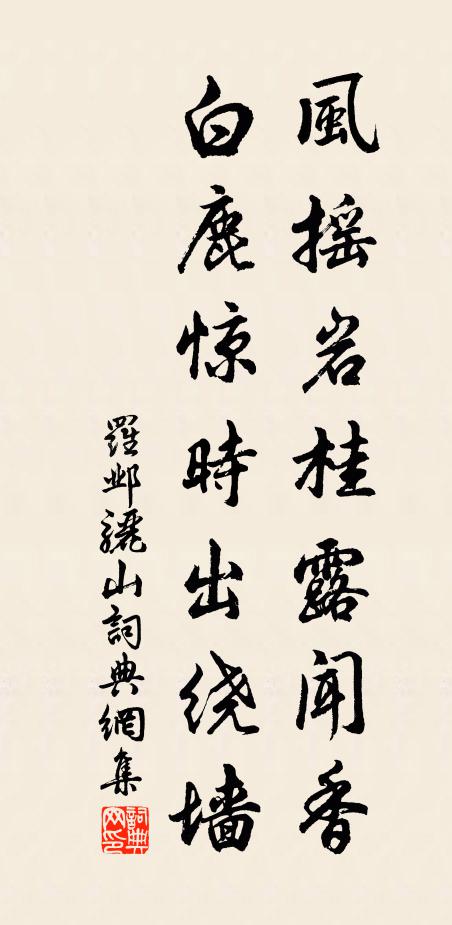 風摇岩桂露闻香
白鹿惊時出绕墙
羅邺驪山詞典網集
詞典网印